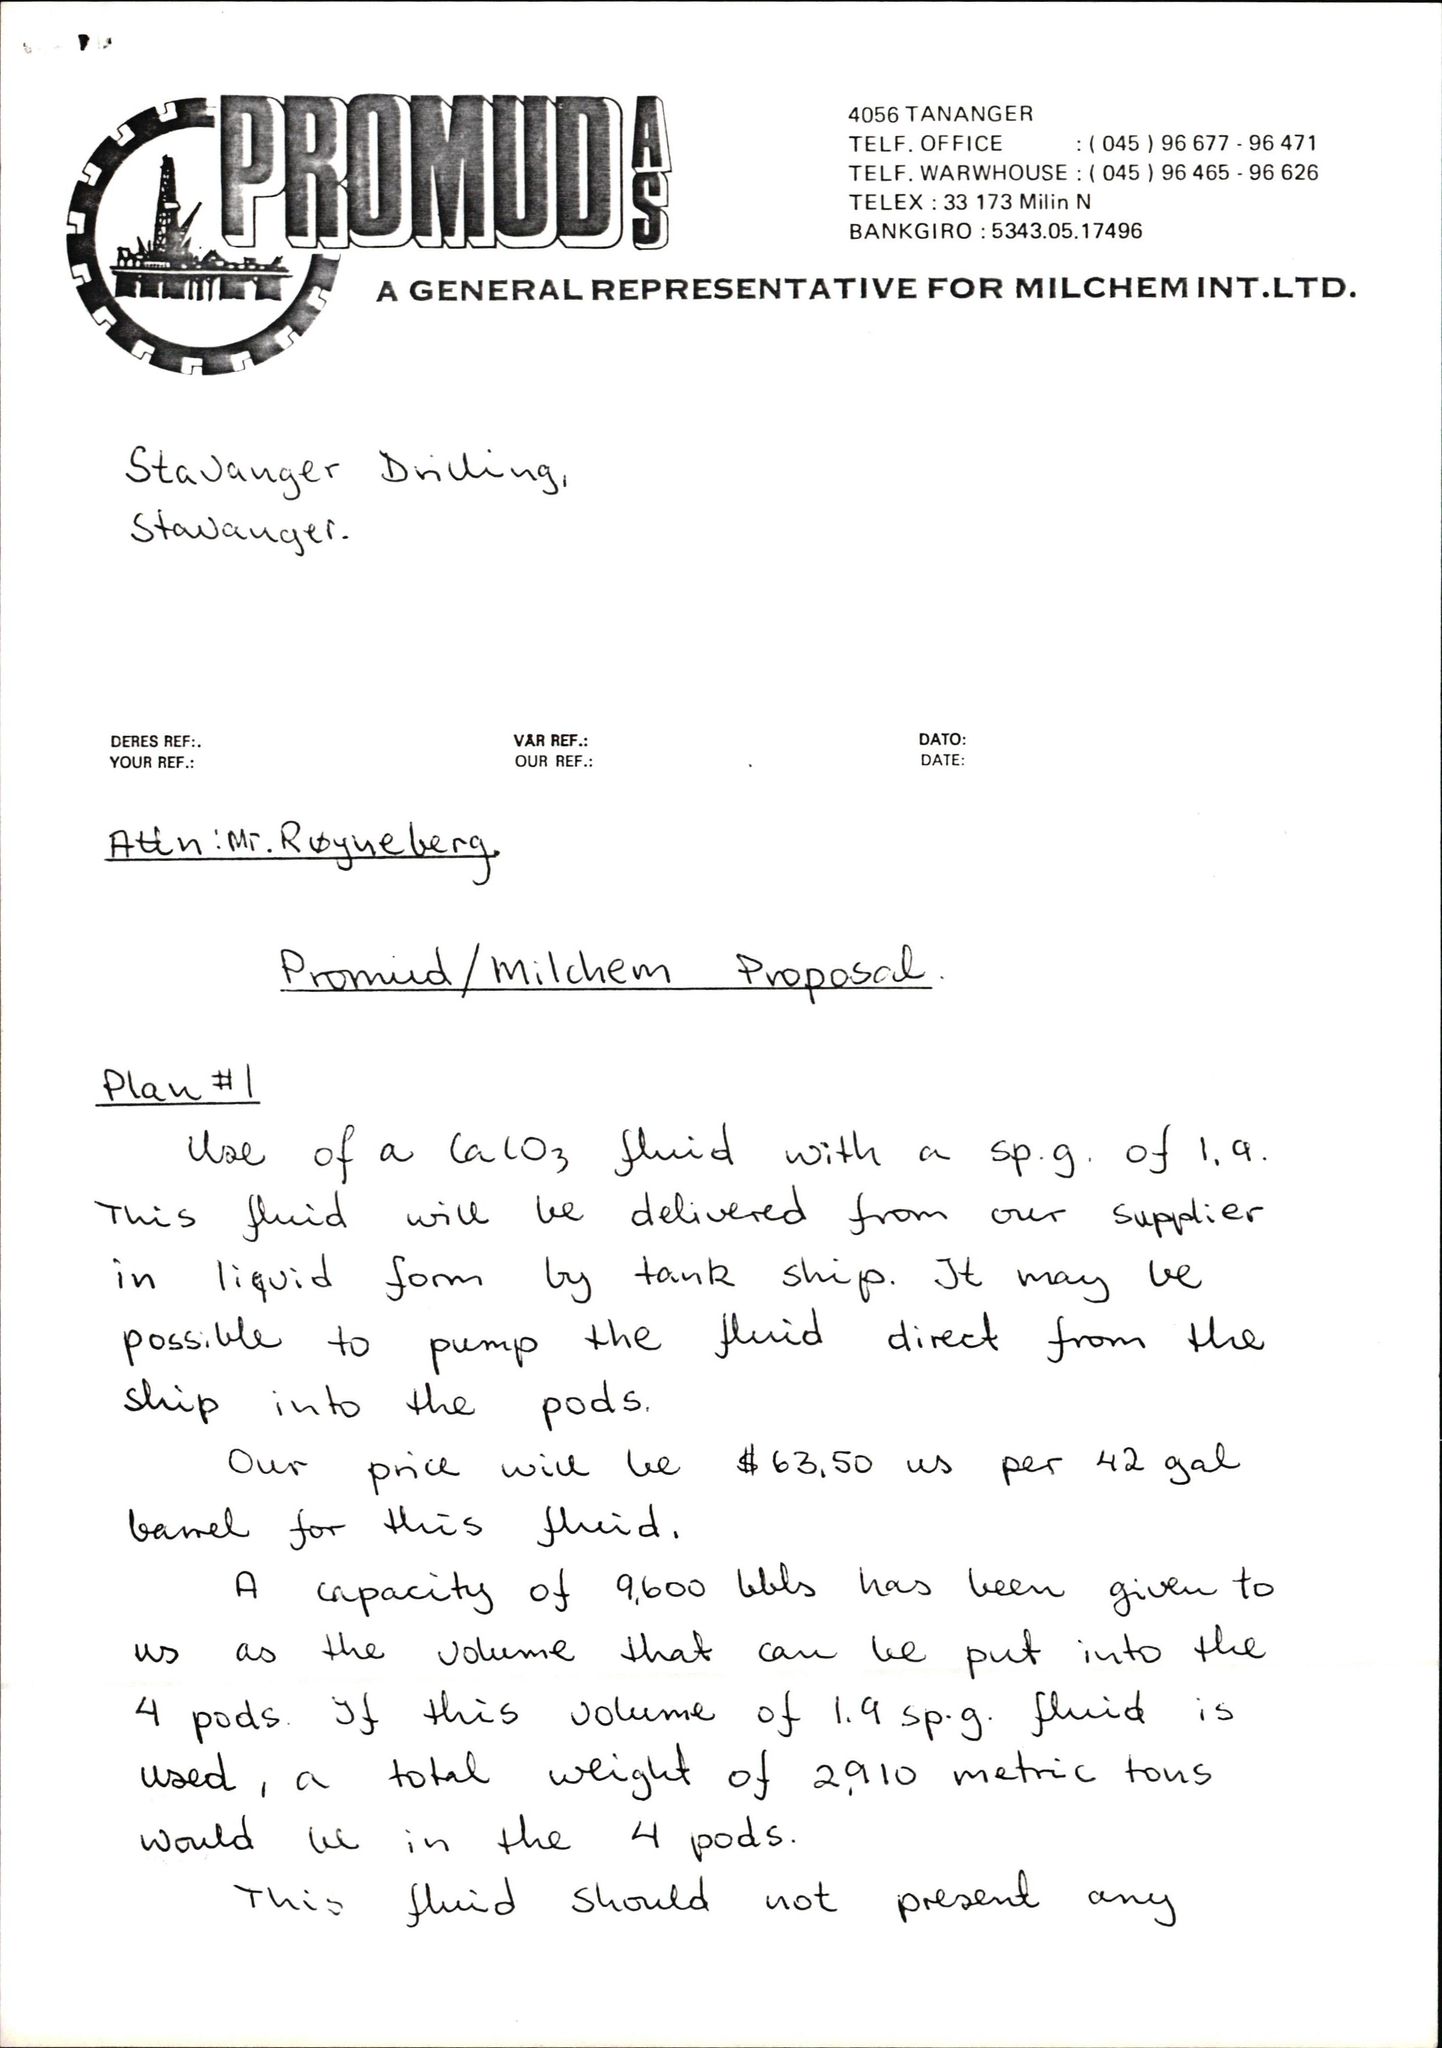 PROMUD AS
4056 TANANGER
TELF. OFFICE : ( 045 ) 96 677 - 96 471
TELF. WARWHOUSE : ( 045 ) 96 465 - 96 626
TELEX : 33 173 Milin N
BANKGIRO : 5343.05.17496
A GENERAL REPRESENTATIVE FOR MILCHEM INT.LTD.
Stavanger Drilling,
Stavanger.
DERES REF:. VÅR REF.: DATO:
YOUR REF.: OUR REF.: DATE:
Attn: Mr. Røyneberg.
Promud/Milchem Proposal.
Plan #1
Use of a CaCO3 fluid with a sp.g. of 1.9.
This fluid will be delivered from our supplier
in liquid form by tank ship. It may be
possible to pump the fluid direct from the
ship into the pods.
Our price will be $63,50 us per 42 gal
barrel for this fluid.
A capacity of 9,600 bbls has been given to
us as the volume that can be put into the
4 pods. If this volume of 1.9 sp.g. fluid is
used, a total weight of 2,910 metric tons
would be in the 4 pods.
This fluid should not present any